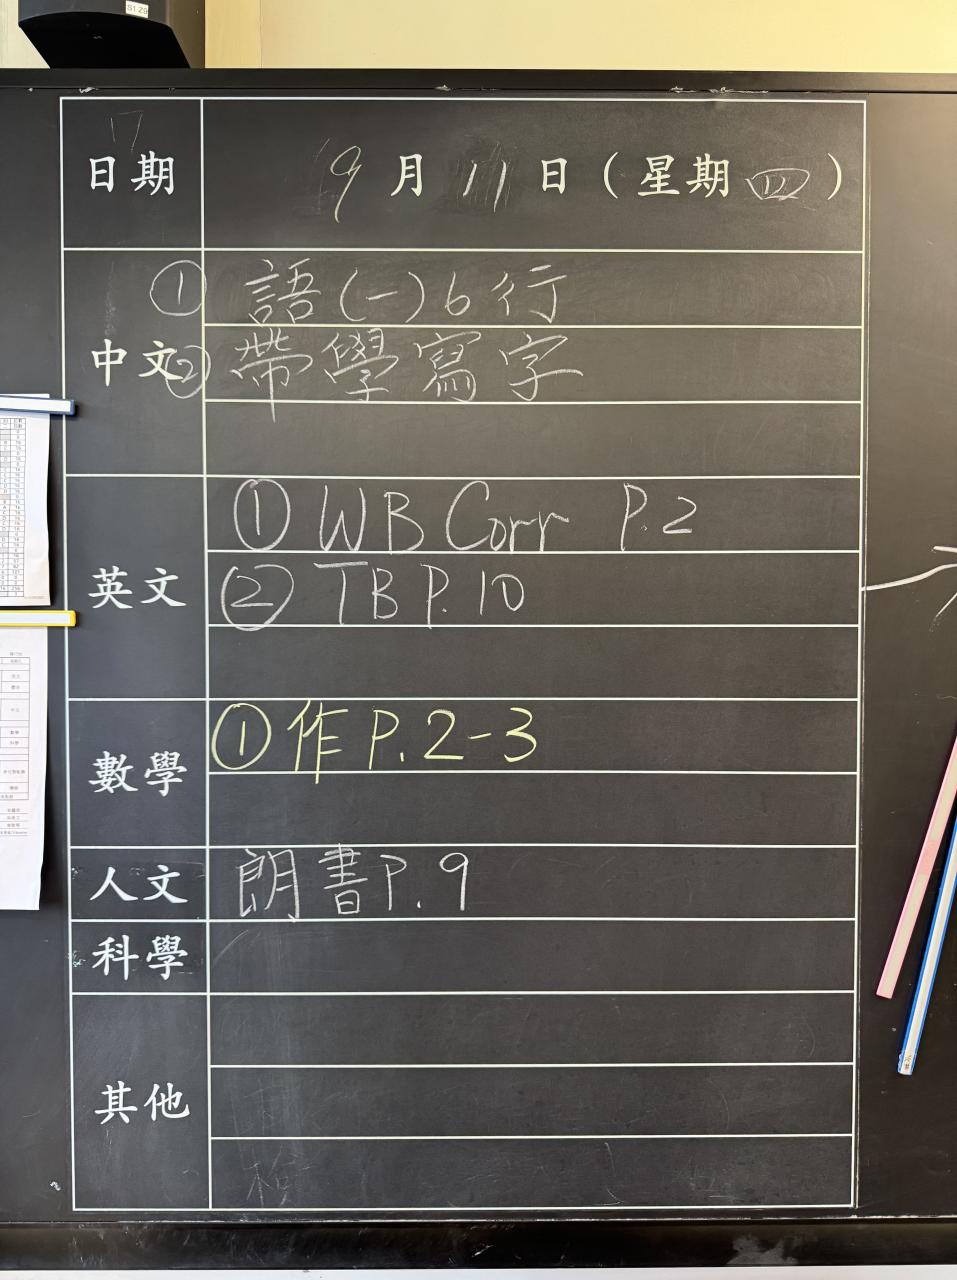 S1 Z9
17
日期 9月11日（星期四）
中文
① 語(一)6行
② 帶學寫字
英文
① WB Corr P.2
② TB P.10
數學
① 作 P.2-3
人文 朗書 P.9
科學
其他